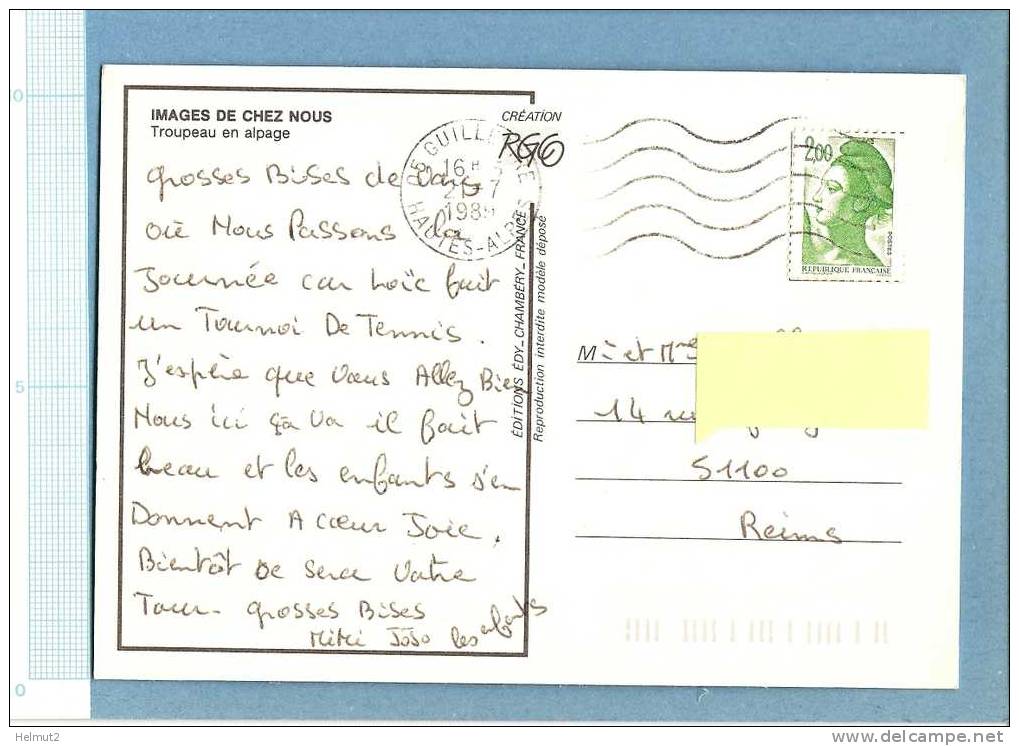 IMAGES DE CHEZ NOUS
Troupeau en alpage
grosses Bises de Vars
où Nous Passons la
Journée car Loïc fait
un Tournoi De Tennis.
J'espère que Vous Allez Bien
Nous ici ça Va il fait
beau et les enfants s'en
Donnent A cœur Joie.
Bientôt ce sera Votre
Tour - grosses Bises
MiMi JoJo les enfants
CRÉATION
RGG
ÉDITIONS ÉDY_CHAMBÉRY_FRANCE
Reproduction interdite modèle déposé
05 GUILLESTRE
16H
7
HAUTES-ALPES
2,00
POSTES
REPUBLIQUE FRANÇAISE
M. et Mme
14 rue
51100
Reims
0
5
0
Helmut2
www.delcampe.net